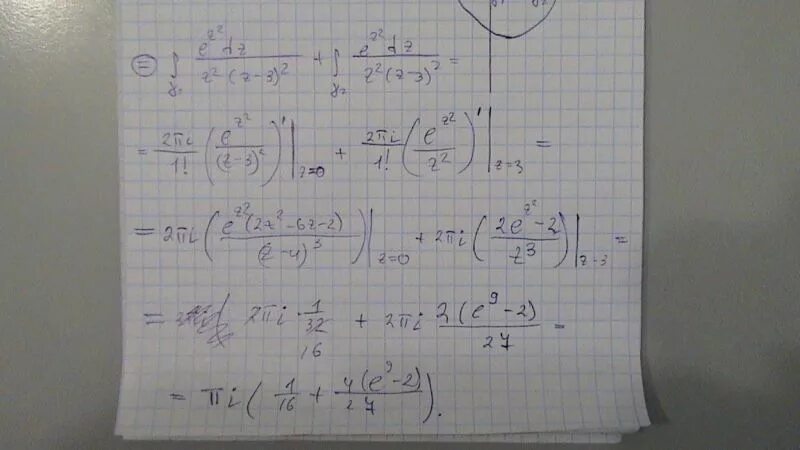 ⊜ ∫_γ₁ e^{z²}dz / z²(z-3)² + ∫_γ₂ e^{z²}dz / z²(z-3)² =
= 2πi/1! (e^{z²}/(z-3)²)'|_{z=0} + 2πi/1! (e^{z²}/z²)'|_{z=3} =
= 2πi (e^{z²}(2z²-6z-2)/(z-4)³)|_{z=0} + 2πi (2e^{z²}-2/z³)|_{z=3} =
= 2πi · 1/16 + 2πi 2(e⁹-2)/27 =
= πi (1/16 + 4(e⁹-2)/27).